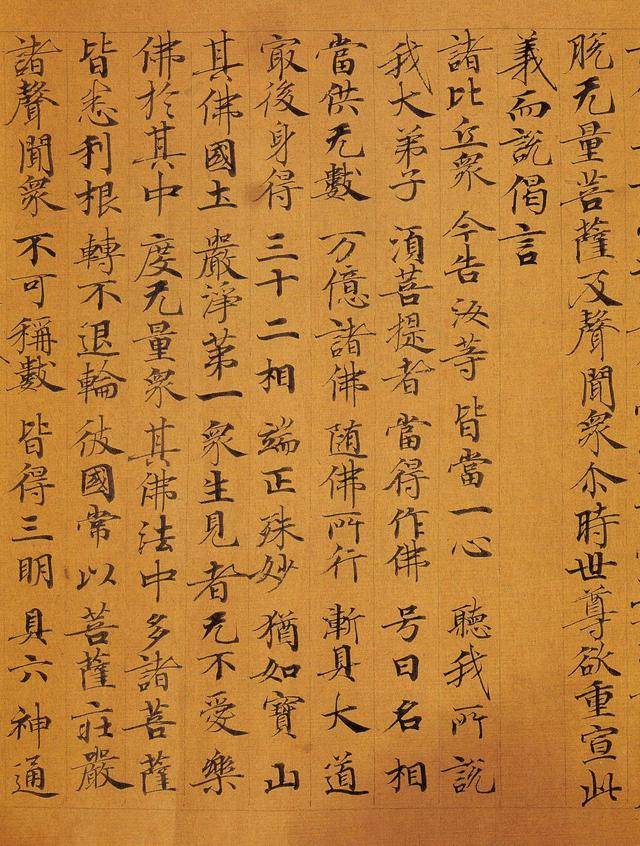 脱无量菩薩及聲聞衆尒時世尊欲重宣此
義而說偈言
諸比丘衆 今告汝等 皆當一心 聽我所說
我大弟子 須菩提者 當得作佛 号曰名相
當供无數 万億諸佛 随佛所行 漸具大道
㝡後身得 三十二相 端正殊妙 猶如寶山
其佛國土 嚴淨第一 衆生見者 无不愛樂
佛於其中 度无量衆 其佛法中 多諸菩薩
皆悉利根 轉不退輪 彼國常以 菩薩莊嚴
諸聲聞衆 不可稱數 皆得三明 具六神通